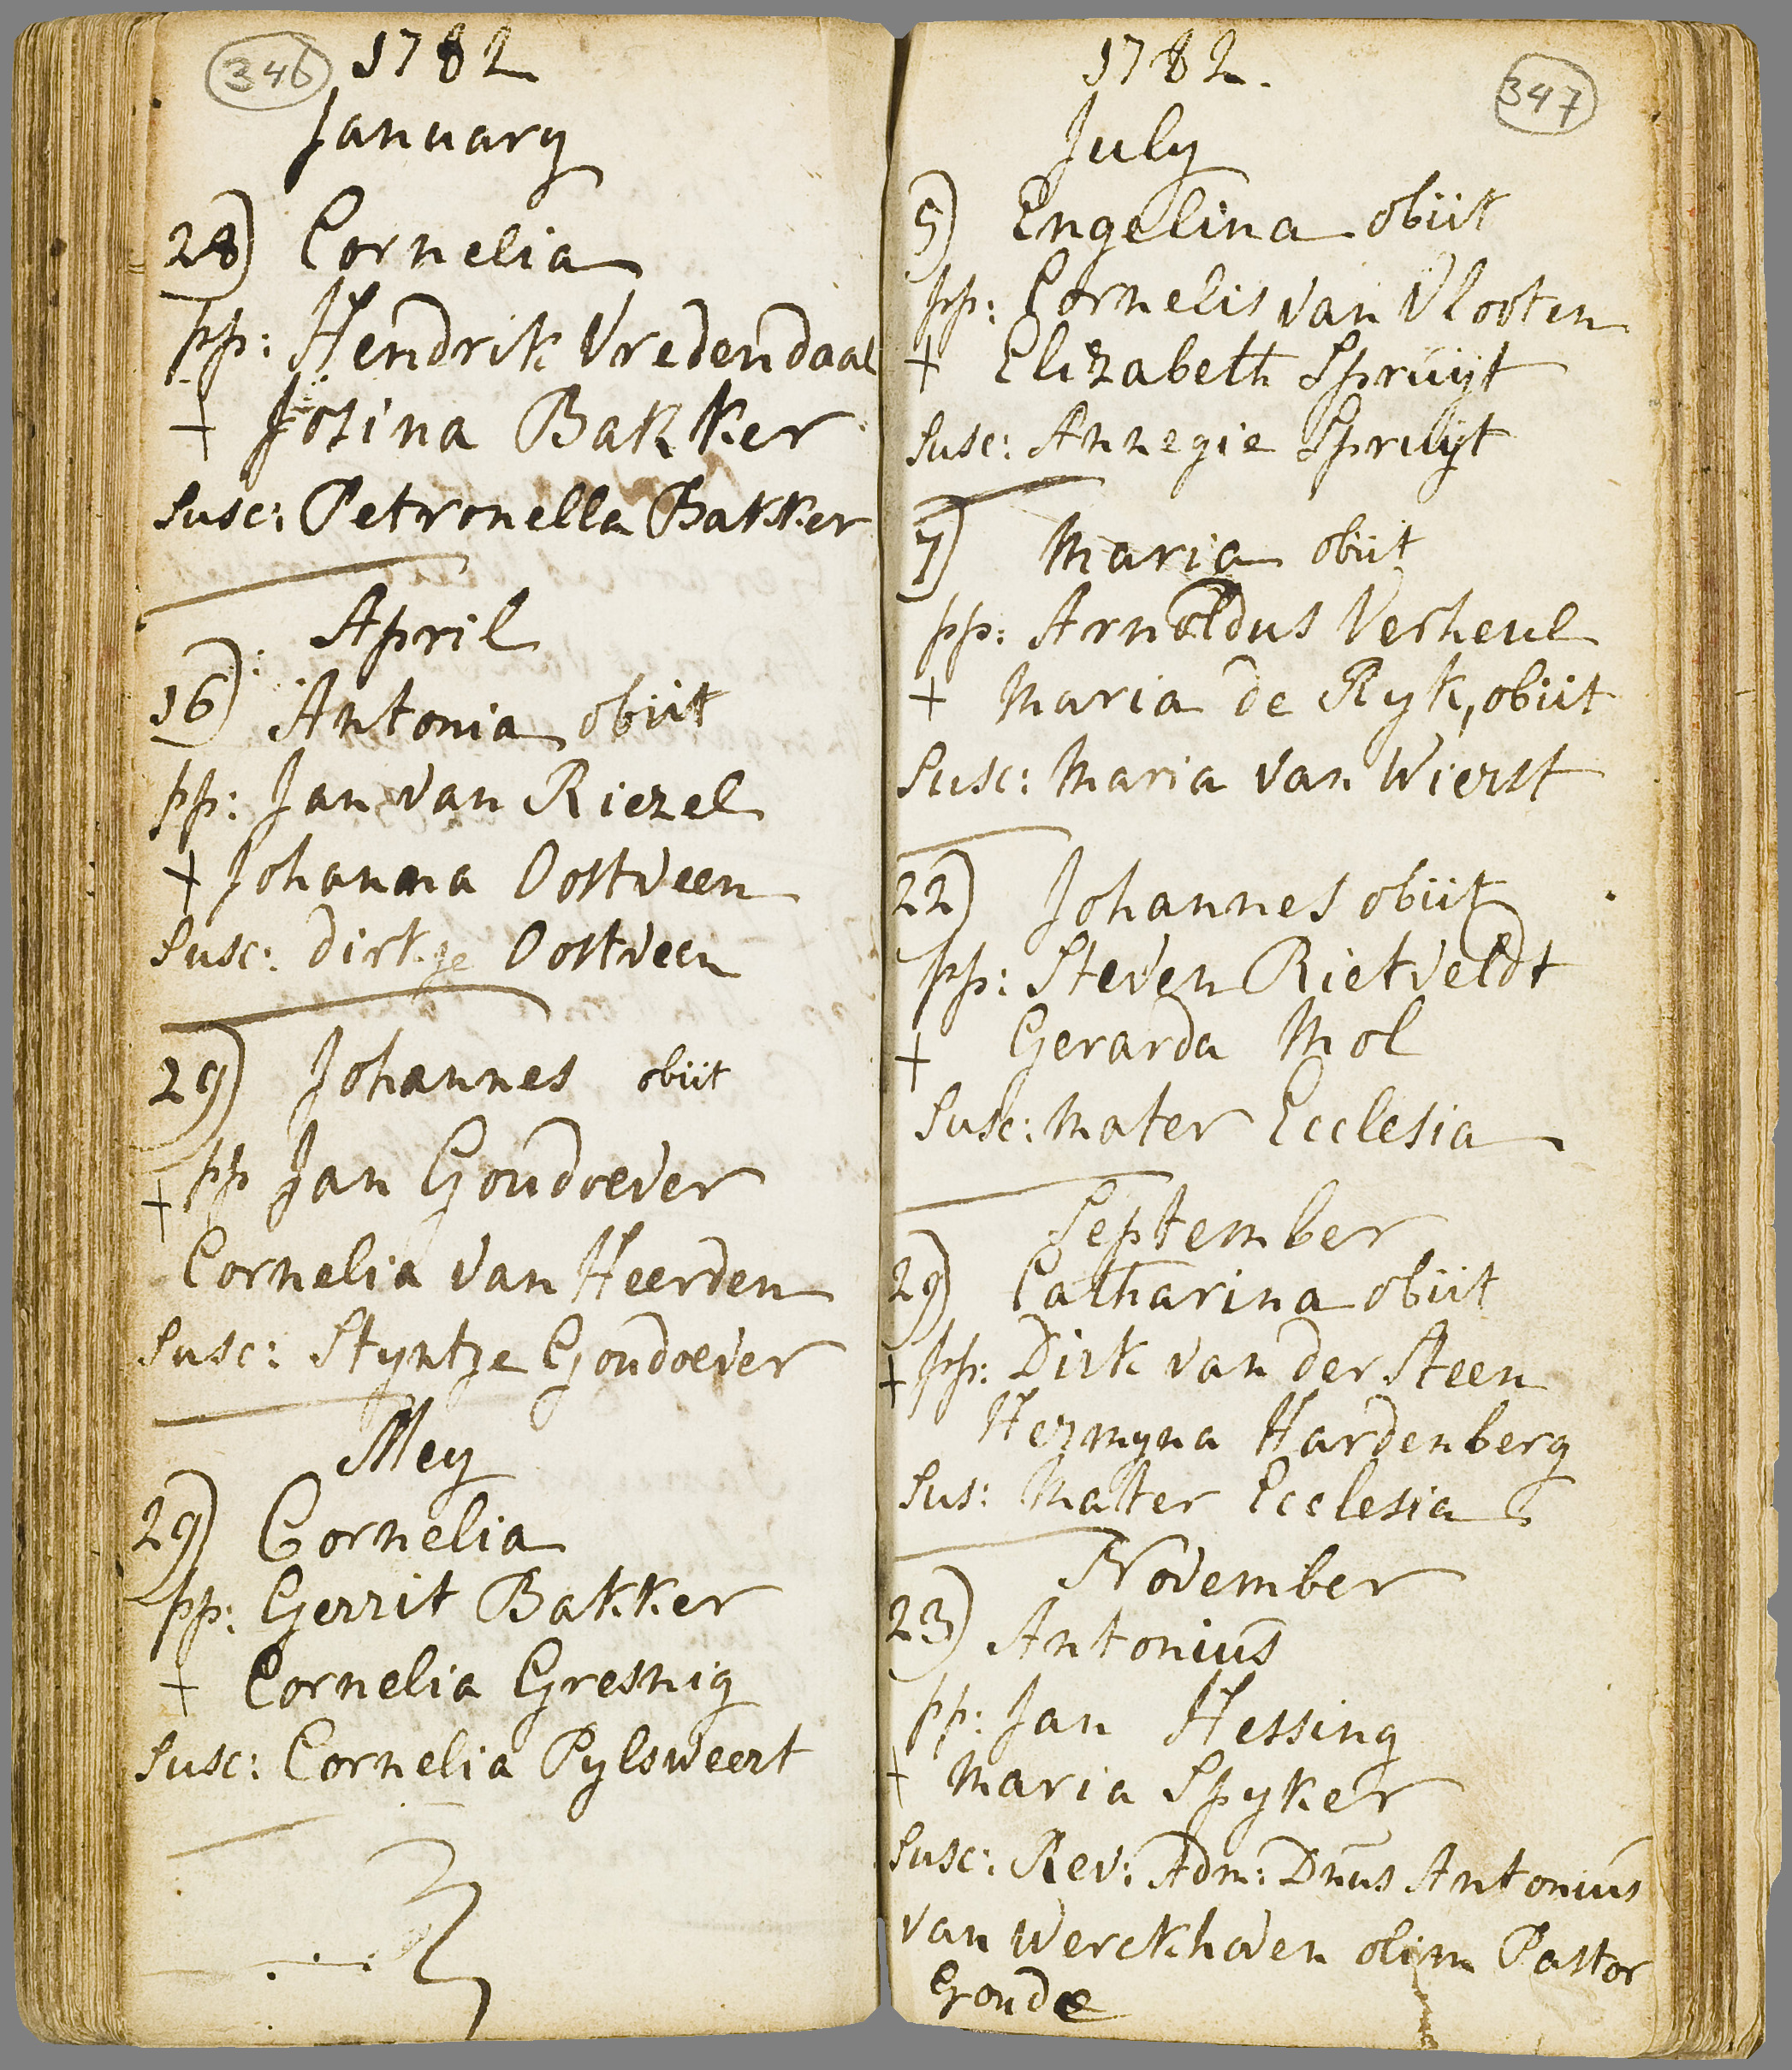 346 1782
January
28) Cornelia
pp: Hendrik Vredendaal
+ Josina Bakker
Susc: Petronella Bakker
April
16) Antonia obiit
pp: Jan van Riezel
+ Johanna Oostveen
Susc: dirkje Oostveen
29) Johannes obiit
pp Jan Goudoever
+
Cornelia van Heerden
Susc: Styntje Goudoever
Mey
29) Cornelia
pp: Gerrit Bakker
+ Cornelia Gresnig
Susc: Cornelia Pylsweert
1782. 347
July
5) Engelina obiit
pp: Cornelis van Vlooten
+ Elizabeth Spruijt
Susc: Annegie Spruijt
7) Maria obiit
pp: Arnoldus Verheul
+ Maria de Ryk, obiit
Susc: Maria van Wierst
22) Johannes obiit
pp: Steven Rietveldt
+ Gerarda Mol
Susc: Mater Ecclesia
September
29) Catharina obiit
+ pp: Dirk van der Steen
Hermyna Hardenberg
Sus: Mater Ecclesia
November
23) Antonius
pp: Jan Hessing
+ Maria Spyker
Susc: Rev: Adm: Dnus Antonius
van Werckhoven olim Pastor
Goudæ